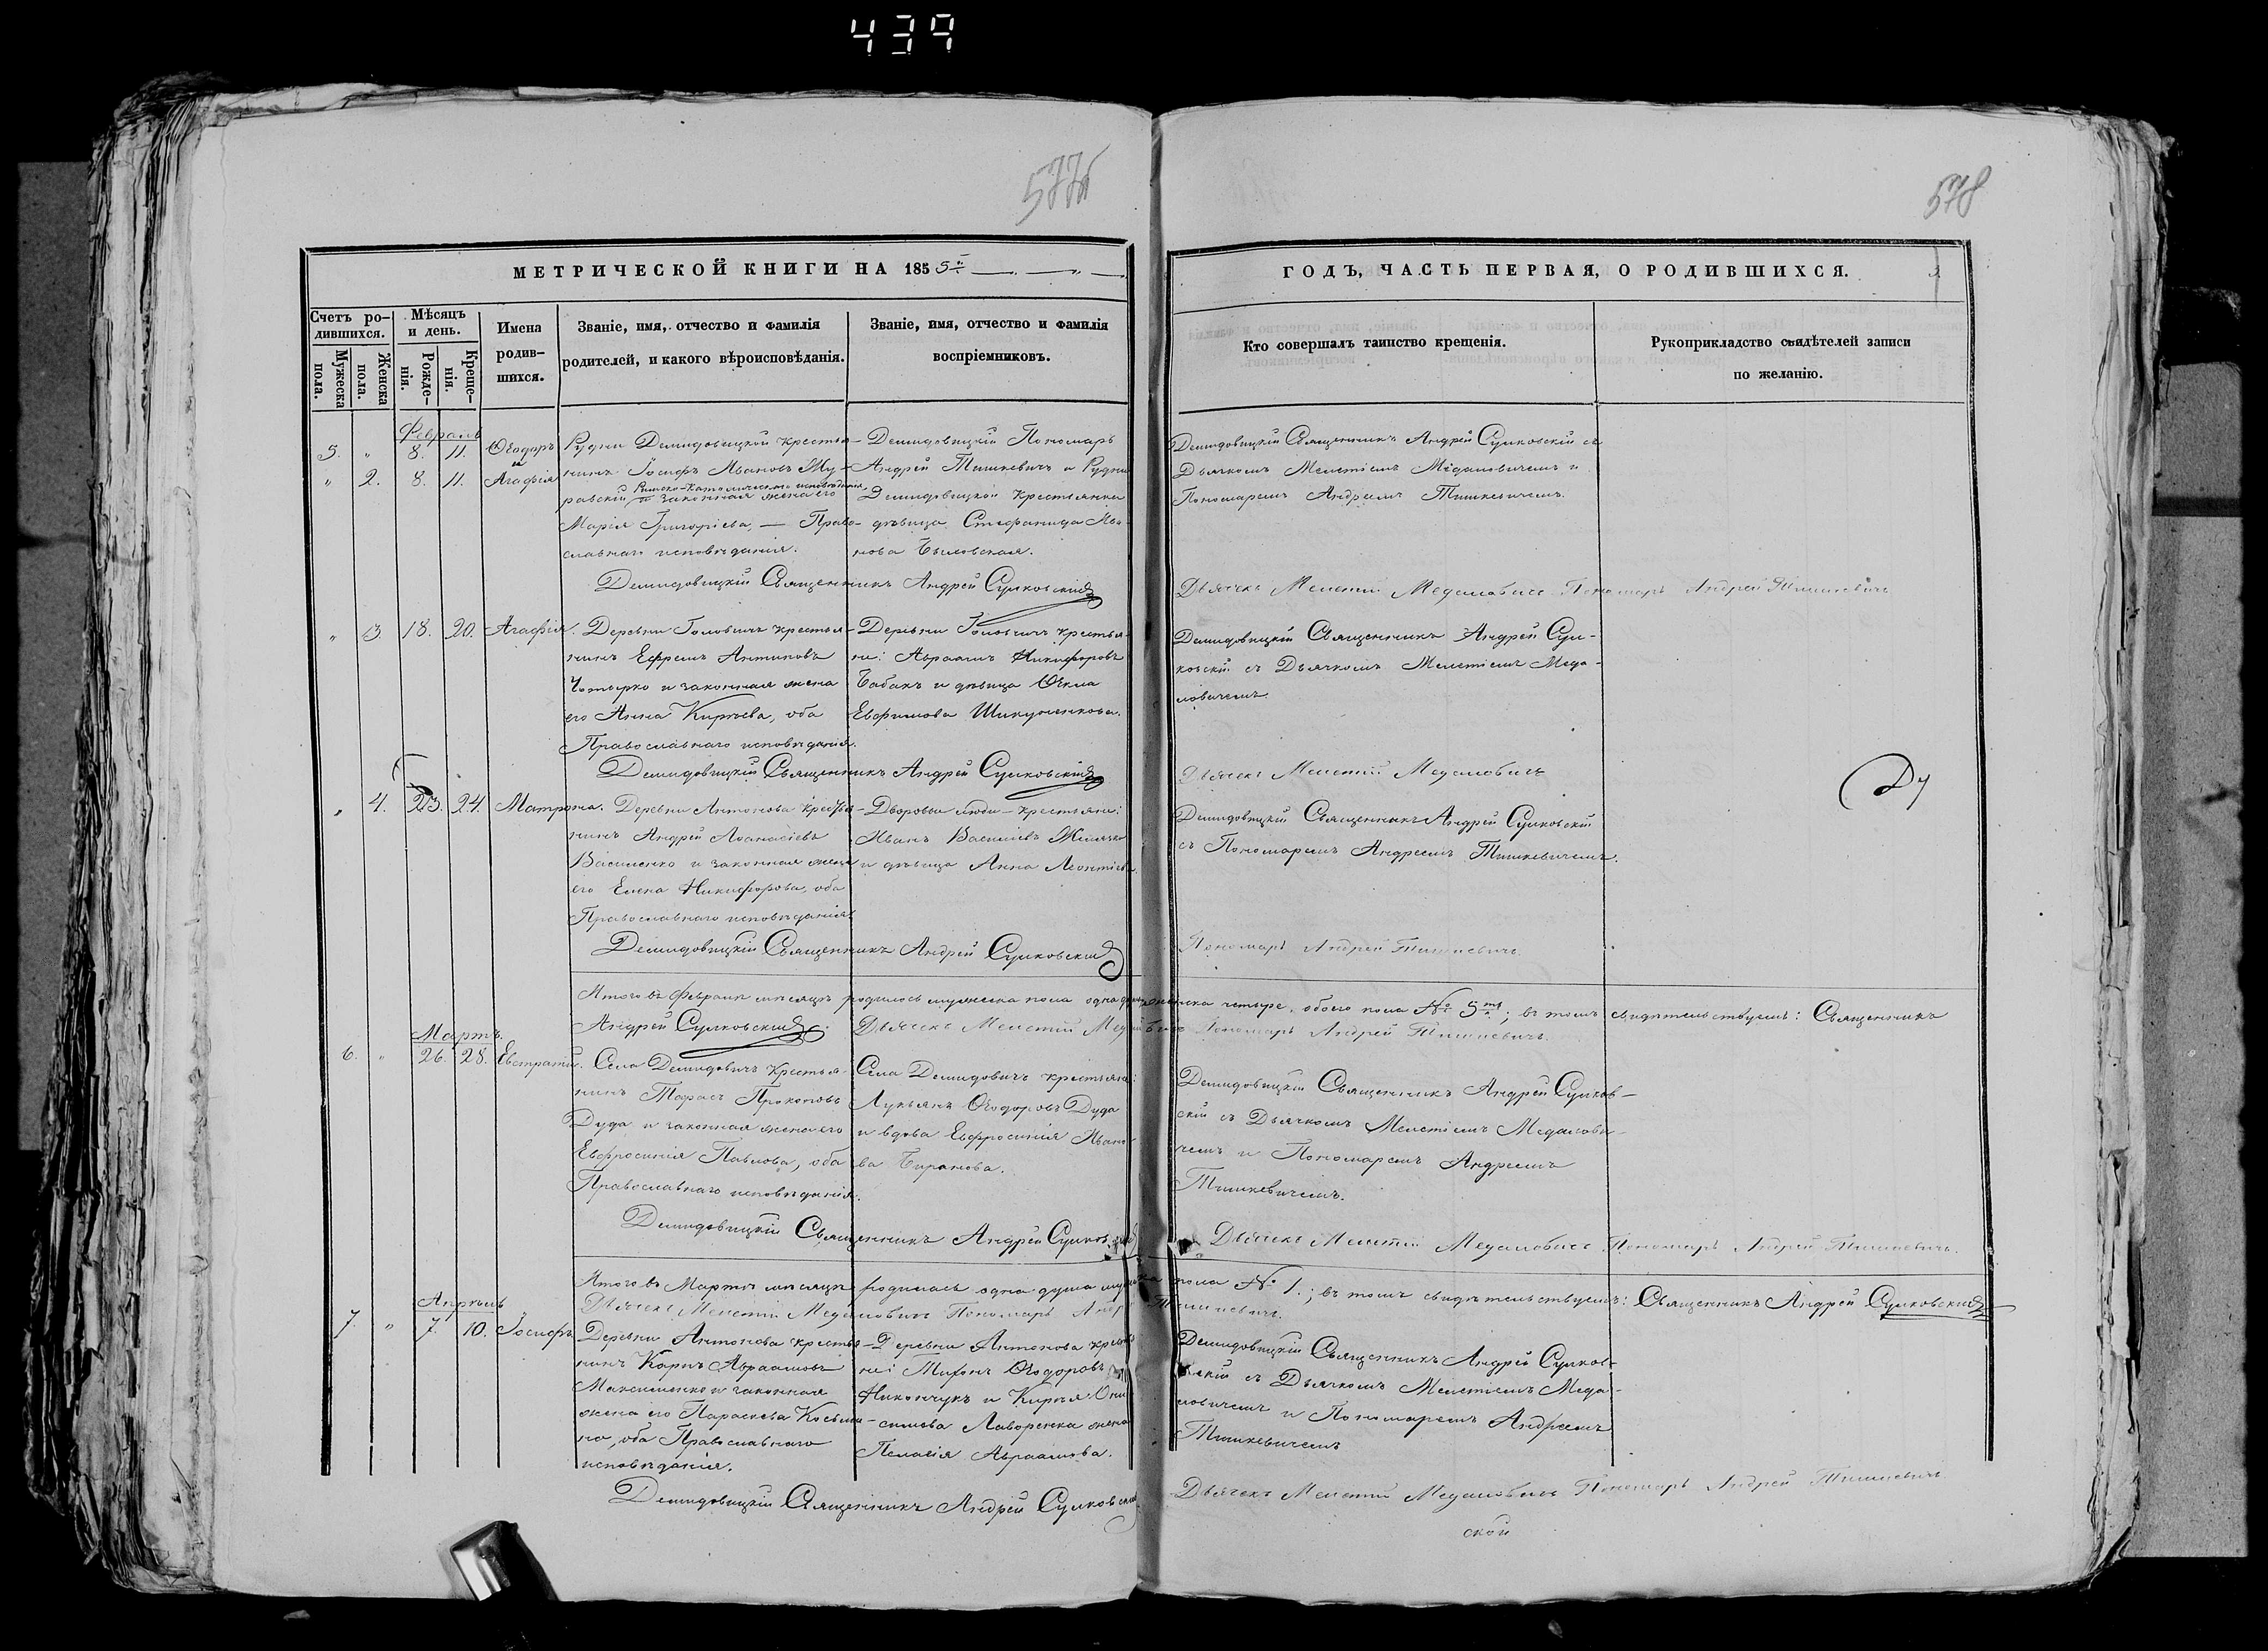 439
577б
578
МЕТРИЧЕСКОЙ КНИГИ НА 1855й
ГОДЪ, ЧАСТЬ ПЕРВАЯ, О РОДИВШИХСЯ.
Счетъ родившихся.
Мужеска пола.
Женска пола.
Мѣсяцъ и день.
Рожденія.
Крещенія.
Имена родившихся.
Званіе, имя, отчество и фамилія
родителей, и какого вѣроисповѣданія.
Званіе, имя, отчество и фамилія
воспріемниковъ.
Кто совершалъ таинство крещенія.
Рукоприкладство свидѣтелей записи
по желанію.
Февраль
5. " 8. 11. Ѳеодоръ
и
" 2. 8. 11. Агафія
Рудни Демидовицкой крестья-
нинъ Іосифъ Ивановъ Му-
Римско-Католическаго исповѣданія
равскій и законная жена его
Марія Григоріева, — Право-
славнаго исповѣданія.
Демидовицкій Пономарь
Андрей Тишкевичъ и Рудни
Демидовицкой крестьянка
дѣвица Стефанида Ива-
нова
Демидовицкій Священникъ Андрей Сулковскій съ
Дьячкомъ Мелетіемъ Медаловичемъ и
Пономаремъ Андреемъ Тишкевичемъ.
Демидовицкій Священникъ Андрей Сулковскій
Дьячекъ Мелетій Медаловичъ Пономарь Андрей Тишкевичъ
" 3. 18. 20. Агафія.
Деревни Головичъ крестья-
нинъ Ефремъ Антиповъ
и законная жена
его Анна Кирѣева, оба
Православнаго исповѣданія.
Деревни Головичъ крестья-
не: Авраамъ Никифоровъ
Бабакъ и дѣвица Ѳекла
Евфимова
Демидовицкій Священникъ Андрей Сул-
ковскій съ Дьячкомъ Мелетіемъ Меда-
ловичемъ
Демидовицкій Священникъ Андрей Сулковскій
Дьячекъ Мелетій Медаловичъ
" 4. 23. 24. Матрона.
Деревни Антонова крестья-
нинъ Андрей Аѳанасіевъ
Василенко и законная жена
его Елена Никифорова, оба
Православнаго исповѣданія.
Дворовы люди — крестьяне:
Иванъ Василіевъ
и дѣвица Анна Леонтіева.
Демидовицкій Священникъ Андрей Сулковскій
съ Пономаремъ Андреемъ Тишкевичемъ.
Демидовицкій Священникъ Андрей Сулковскій
Пономарь Андрей Тишкевичъ
Итого въ Февралѣ мѣсяцѣ родилось мужеска пола одна женска четыре, обоего пола № 5ть; въ томъ свидѣтельствуемъ: Священникъ
Андрей Сулковскій Дьячекъ Мелетій Пономарь Андрей Тишкевичъ
Мартъ.
6. " 26. 28. Евстратій.
Села Демидовичъ крестья-
нинъ Тарасъ Прокоповъ
Дуда и законная жена его
Евфросинія Павлова, оба
Православнаго исповѣданія.
Села Демидовичъ крестьяне:
Лукьянъ Ѳеодоровъ Дуда
и вдова Евфросинія Ивано-
ва
Демидовицкій Священникъ Андрей Сулков-
скій съ Дьячкомъ Мелетіемъ Медалови-
чемъ и Пономаремъ Андреемъ
Тишкевичемъ.
Демидовицкій Священникъ Андрей
Дьячекъ Мелетій Медаловичъ Пономарь Андрей Тишкевичъ.
Итого въ Мартѣ мѣсяцѣ родилась одна душа пола № 1.; въ томъ свидѣтельствуемъ: Священникъ Андрей Сулковскій
Дьячекъ Мелетій Медаловичъ Пономарь Тишкевичъ.
Апрѣль
7. " 7. 10. Іосифъ.
Деревни Антонова крестья-
нинъ Карпъ Авраамовъ
Максименко и законная
жена его Параскева Косьми-
на, оба Православнаго
исповѣданія.
Деревни Антонова
не: Тихонъ Ѳеодоровъ
Никончукъ и Кирѣя Они-
симова Лаворенка жена
Пелагія Авраамова.
Демидовицкій Священникъ Андрей Сулков-
скій съ Дьячкомъ Мелетіемъ Меда-
ловичемъ и Пономаремъ Андреемъ
Тишкевичемъ
Демидовицкій Священникъ Андрей
Дьячекъ Мелетій Медаловичъ Пономарь Андрей Тишкевичъ
ской